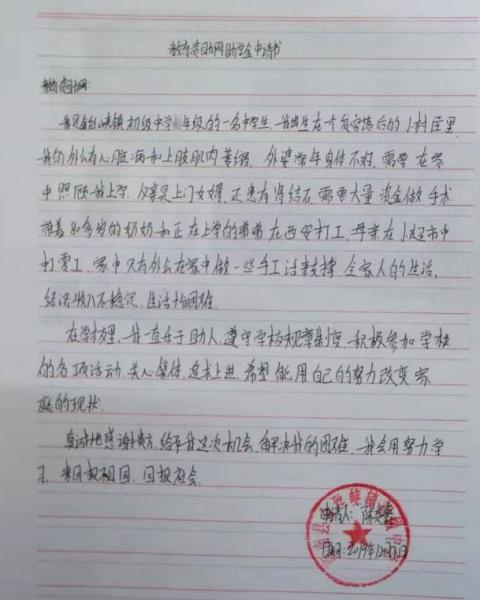 教育资助网助学金申请书
教育资助网:
我是 镇初级中学 年级的一名中学生,我出生在一个贫穷落后的小村庄里
我的外公有心脏病和上肢肌肉萎缩,外婆常年身体不好,需要在家
中照顾我上学,父亲是上门女婿,还患有肾结石,需要大量资金做手术
推着80多岁的奶奶和正在上学的爷爷在西安打工,母亲在小超市中
打零工,家中只有外公在家中做一些手工活来支撑全家人的生活,
经济收入不稳定,生活十分困难。
在学校里,我一直乐于助人,遵守学校规章制度,积极参加学校
的各项活动,关心集体,追求上进,希望能用自己的努力改变家
庭的现状。
真诚地感谢贵方给予我这次机会,解决我的困难,我会用努力学
习,来回报祖国,回报社会。
申请人:陈
日期:2019年12月 日